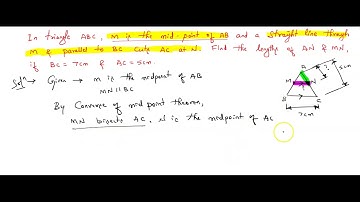 In triangle ABC, M is the mid-point of AB and a straight line through
M & parallel to BC cuts AC at N. Find the lengths of AN & MN,
if BC = 7cm & AC = 5cm.
Solⁿ → Given → M is the midpoint of AB
MN || BC
By Converse of mid point theorem,
MN bisects AC, N is the midpoint of AC
A
M
N
B
C
?
5cm
7cm